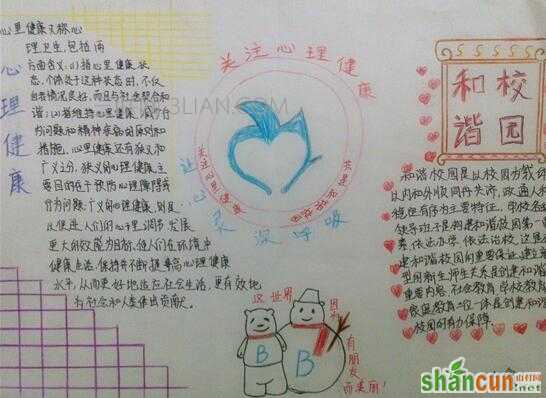 心里健康又称心
理卫生,包括两
方面含义,(1)指心理健康状
态,个体处于这种状态时,不仅
自我情况良好,而且与社会契合和
谐,(2)指维持心理健康、减少行
为问题和精神疾病的原则和
措施。心里健康还有狭义和
广义之分,狭义的心理健康,主
要目的在于预防心理障碍或
行为问题,广义的心理健康,则是
以促进人们的心理调节发展
更大的效能为目标,使人们在环境中
健康生活,保持并不断提高心理健康
水平,从而更好地适应社会生活,更有效地
为社会和人类作出贡献。
心理健康
关注心理健康
让心灵深呼吸
和谐校园
和谐校园是以校园为载
以内和外顺,同舟共济,政通人和
稳定有序为主要特征。学校
领导班子是构建和谐校园第一
要素,依法办学、依法治校,这是
建和谐校园的重要保证,建立
型的新生师生关系是创建和谐
重要内容,社会教育学校教育
家庭教育三位一体是创建和谐
校园的有力保障。
这世界
因为
有朋友
而美丽!
B
B
3LIAN.COM
shancun
山村网
.net